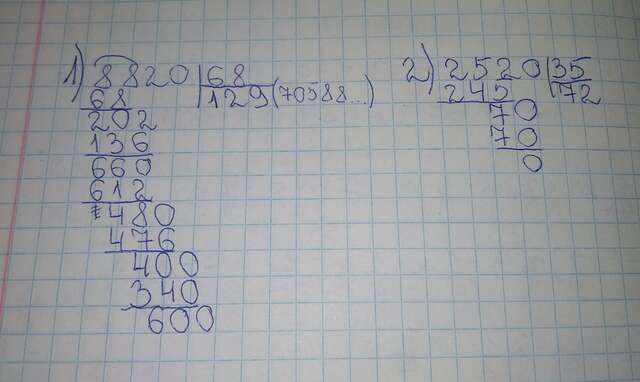 1) 8820 68
68 129(70588...)
202
136
660
612
480
476
400
340
600
2) 2520 35
245 72
70
70
0